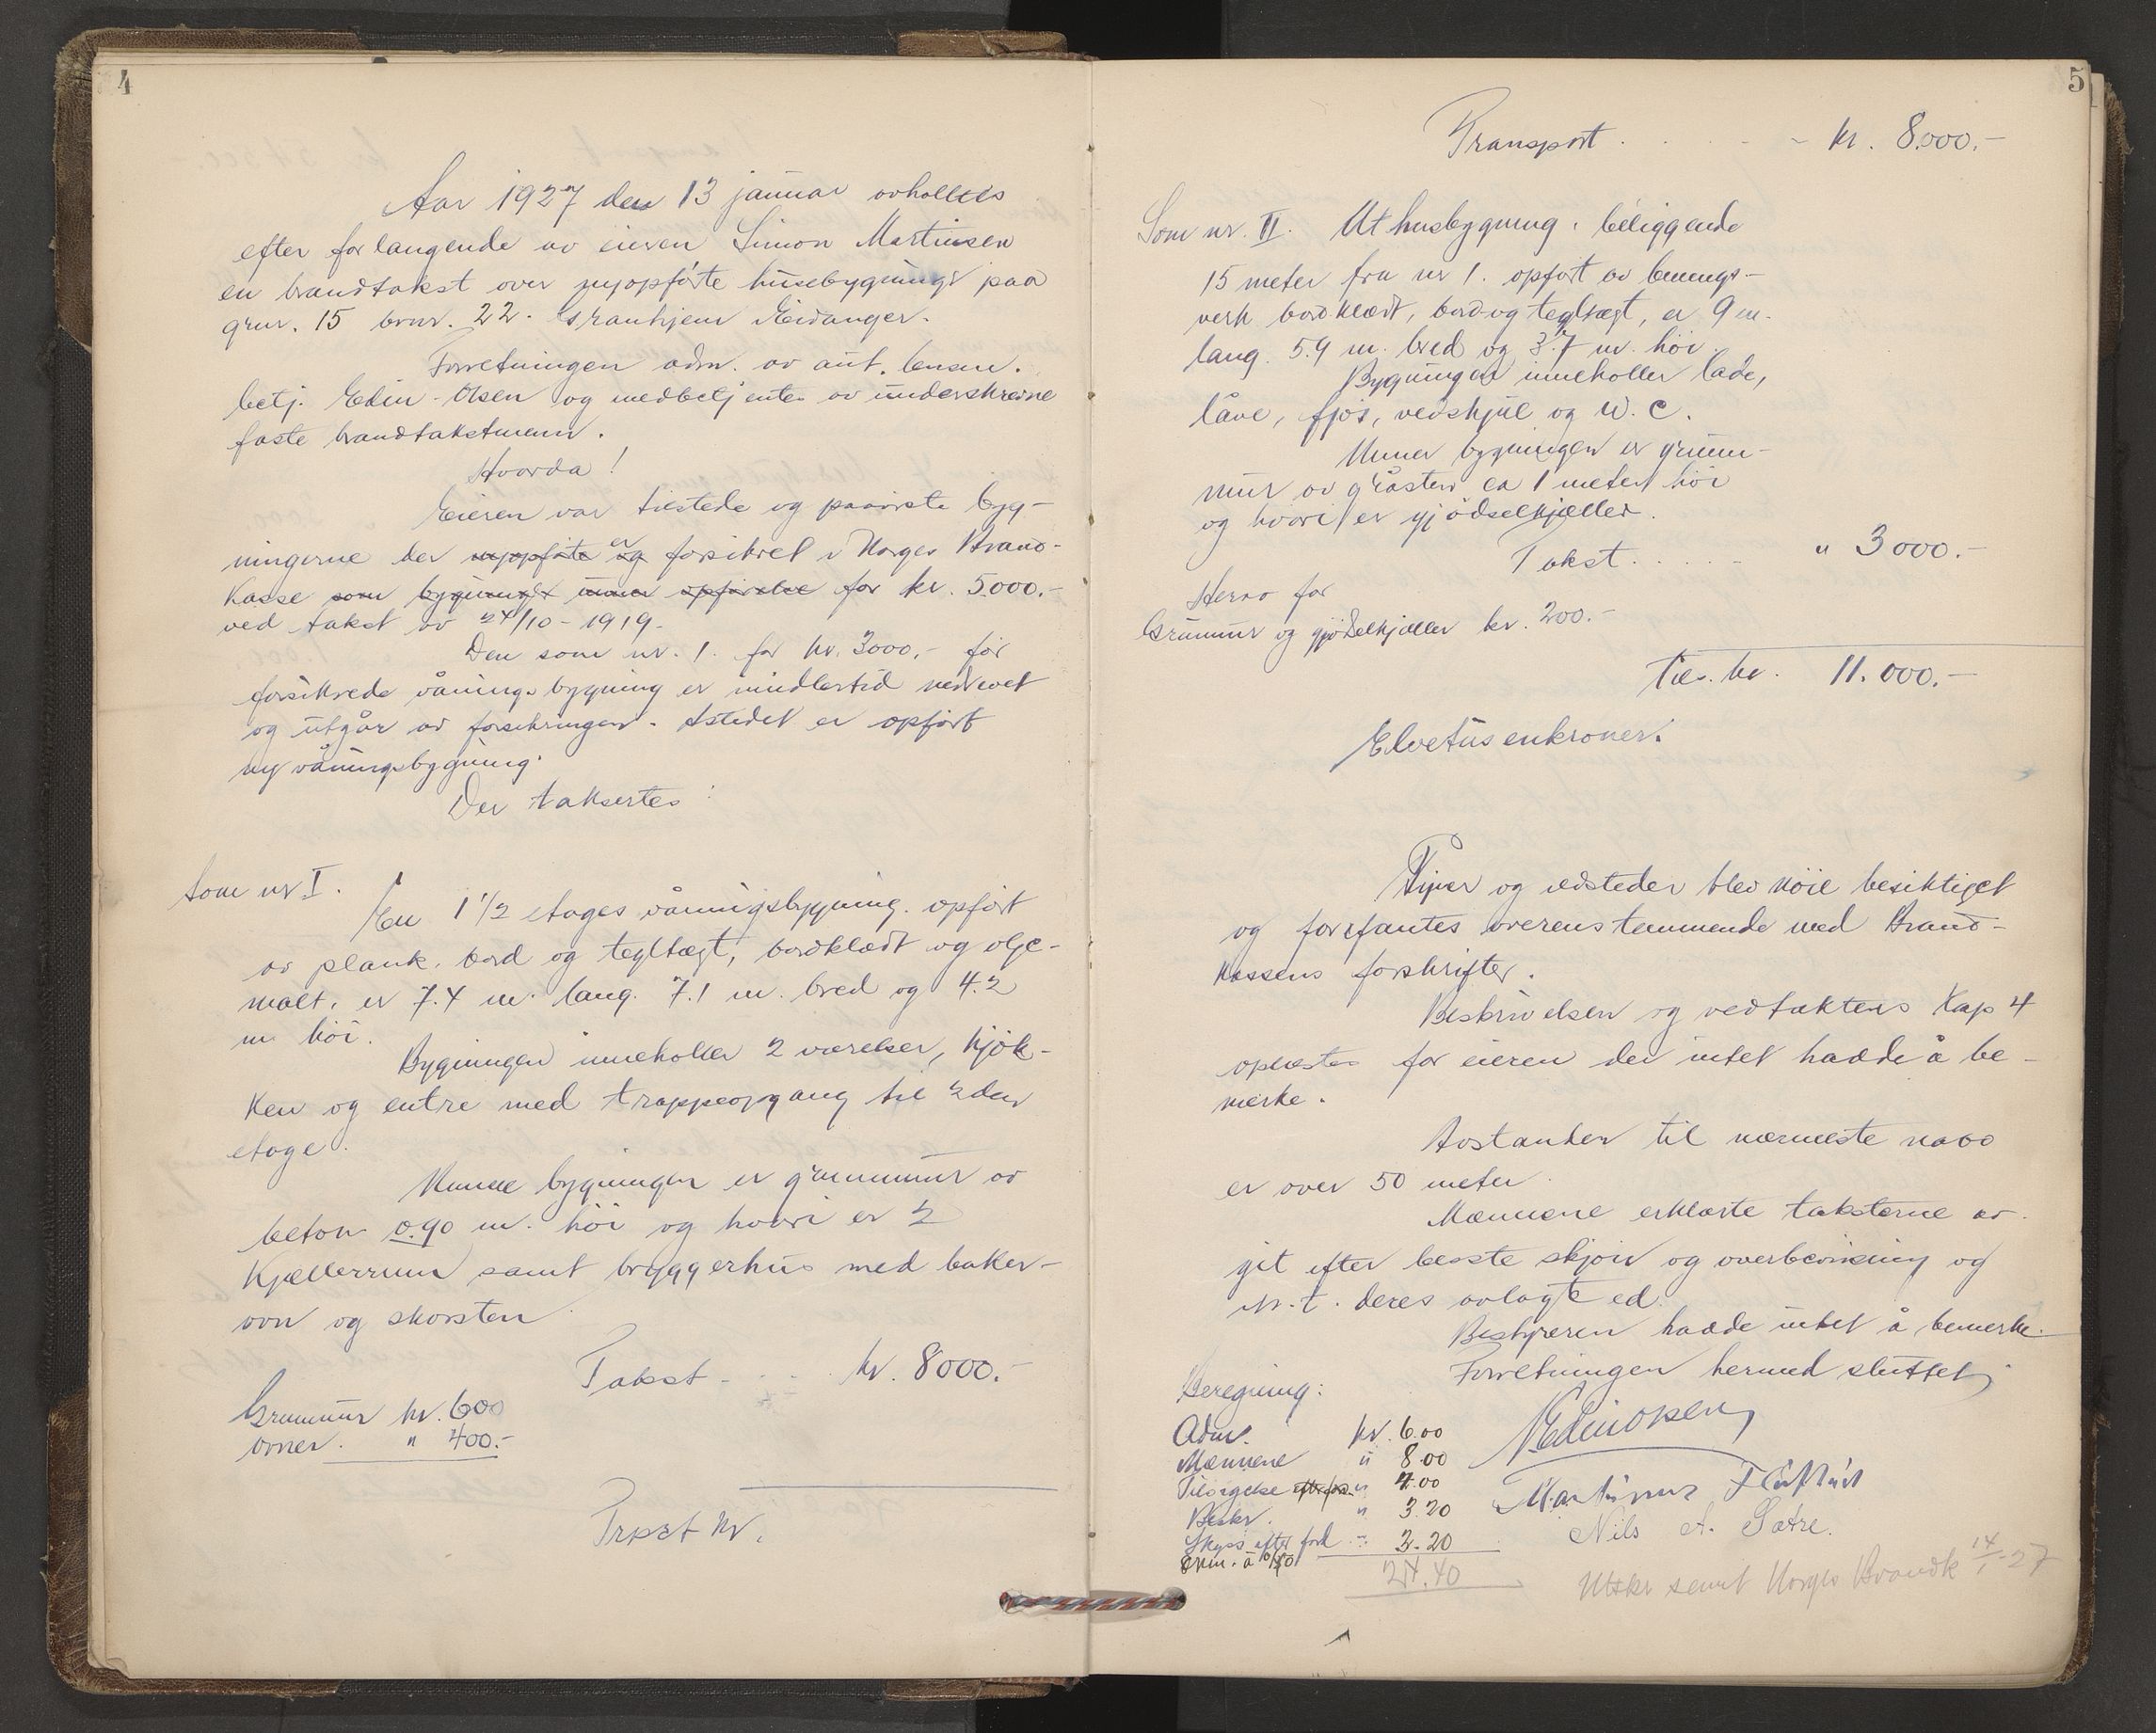 4
Aar 1927 den 13 januar avholtes
efter forlangende av eieren Simon Martinsen
en brandtakst over nyopførte husebygninger paa
grnr. 15 brnr. 22. Granhjem i Eidanger.
Forretningen adm. av aut. lensm.
betj. Edin-Olsen og medbetjentes av underskrevne
faste brandtakstmenn.
Hvorda!
Eieren var tilstede og paaviste byg-
ningerne der nyopførte og er forsikret i Norges Brand-
kasse som bygninger under opførelse for kr. 5.000.-
ved takst av 24/10-1919.
Den som nr. 1. for kr. 3000,- før
forsikrede våningsbygning er imidlertid nedrevet
og utgår av forsikringen. Istedet er opført
ny våningsbygning.
Der taksertes:
Som nr I.
En 1 1/2 etages våningsbygning. opført
av plank. bord og tegltægt, bordklædt og olje-
malt. er 7.4 m. lang. 7.1 m. bred og 4.2
m. høi.
Bygningen inneholler 2 værelser, kjøk-
ken og entre med trappeopgang til 2den
etage.
Unner bygningen er grunnmur av
beton 0.90 m. høi og hvori er 2
kjællerrum samt bryggerhus med baker-
ovn og skorsten.
Takst - . . . kr. 8000.-
Grunmur kr. 600
ovner. " 400.-
Trpst kr.
5
Transport . . . - - kr. 8.000.-
Som nr. II. Uthusbygning. beliggende
15 meter fra nr 1. opført av binnings-
verk bordklædt, bord og tegltægt, er 9 m.
lang. 5.9 m. bred og 3.7 m. høi.
Bygningen inneholler lade,
låve, fjøs, vedskjul og W.C.
Unner bygningen er grunn-
mur av gråsten ca 1 meter høi
og hvori er gjødselkjæller.
Takst . . . . . " 3000.-
Herav for
Grunmur og gjødselkjæller kr. 200.-
Tils. kr. 11.000.-
Elvetusenkroner.
Piper og ildsteder blev nøie besiktiget
og forefantes overenstemmende med Brand-
kassens forskrifter.
Beskrivelsen og vedtæktens Kap 4
oplæstes for eieren der intet hadde å be-
merke.
Avstanden til nærmeste nabo
er over 50 meter.
Mænnene erklærte taksterne av-
git efter beste skjøn og overbevisning og
i h. t. deres avlagte ed.
Bestyreren hadde intet å bemerke.
Forretningen hermed sluttet,
Beregning:
Adm. kr. 6.00
Mænnene " 8.00
Tilsigelse " 4.00
Beskr. " 3.20
Skyss efter ford " 3.20
24.40
N Edin Olsen
Martinus
Nils A. Sætre.
Utskr sennt Norges Brandk 14/1-27